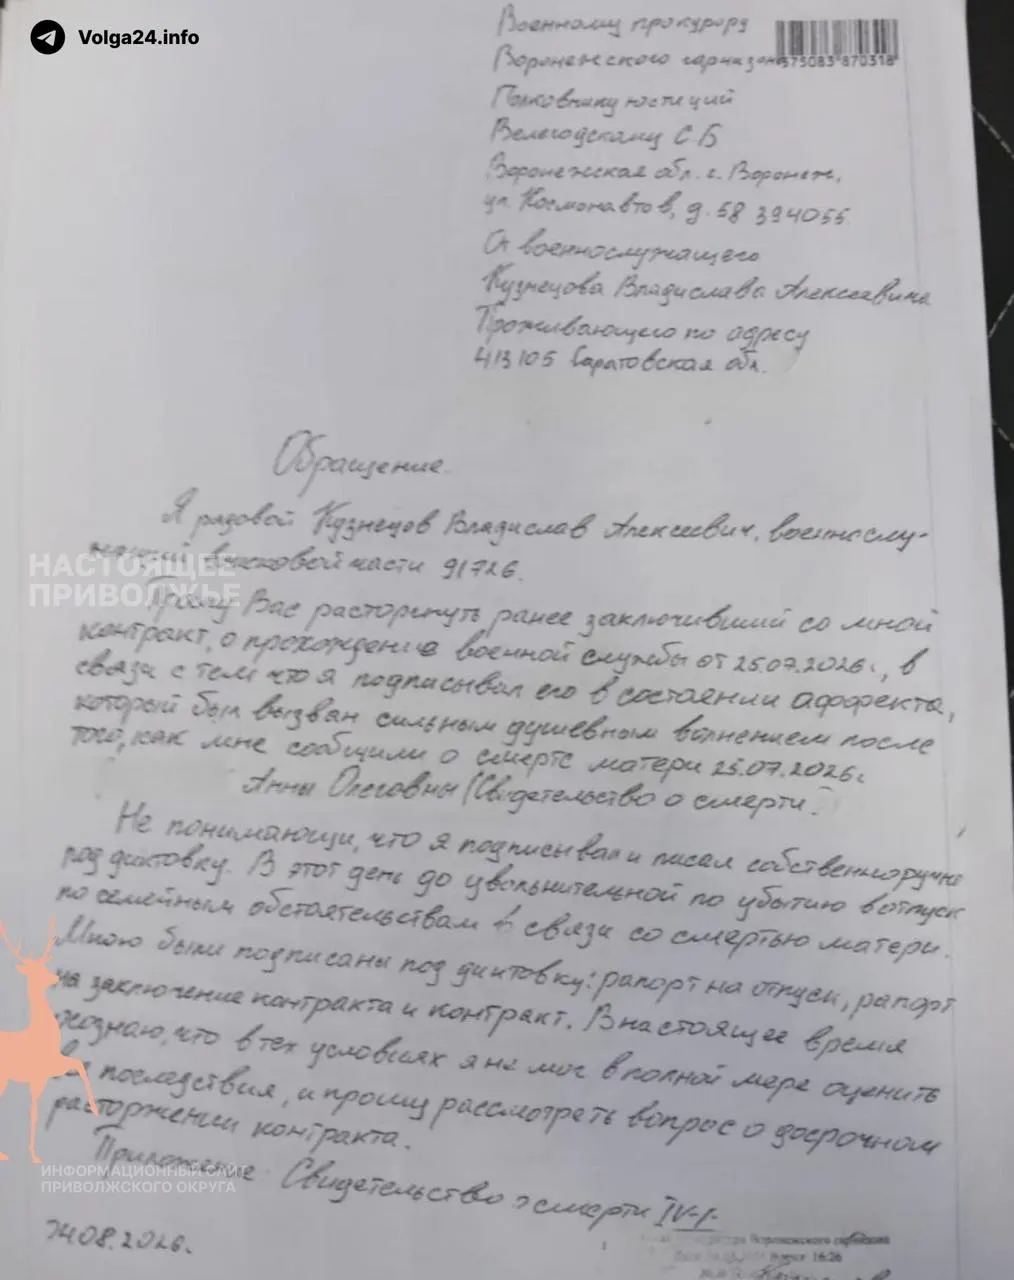 Volga24.info
Военному прокурору
Воронежского гарнизона
375083 870318
Полковнику юстиций
Велегодскому С.Б
Воронежская обл. г. Воронеж,
ул. Космонавтов, д. 58 394055
От военнослужащего
Кузнецова Владислава Алексеевича
Проживающего по адресу
413105 Саратовская обл.
Обращение.
Я рядовой Кузнецов Владислав Алексеевич, военнослу-
жащий войсковой части 91726.
НАСТОЯЩЕЕ
ПРИВОЛЖЬЕ
Прошу Вас расторгнуть ранее заключивший со мной
контракт, о прохождение военной службы от 25.07.2026г., в
связи с тем что я подписывал его в состоянии аффекта,
который был вызван сильным душевным волнением после
того, как мне сообщили о смерте матери 25.07.2026г
Анны Олеговны (Свидетельство о смерти
Не понимающи, что я подписывал и писал собственноручно
под диктовку. В этот день до увольнительной по убытию в отпуск
по семейным обстоятельствам в связи со смертью матери.
Мною были подписаны под диктовку: рапорт на отпуск, рапорт
на заключение контракта и контракт. В настоящее время
осознаю, что в тех условиях я не мог в полной мере оценить
все последствия, и прошу рассмотреть вопрос о досрочном
расторжении контракта.
Приложение: Свидетельство о смерти IV-
ИНФОРМАЦИОННЫЙ САЙТ
ПРИВОЛЖСКОГО ОКРУГА
08.2026г.
Воронежского гарнизона
16:26